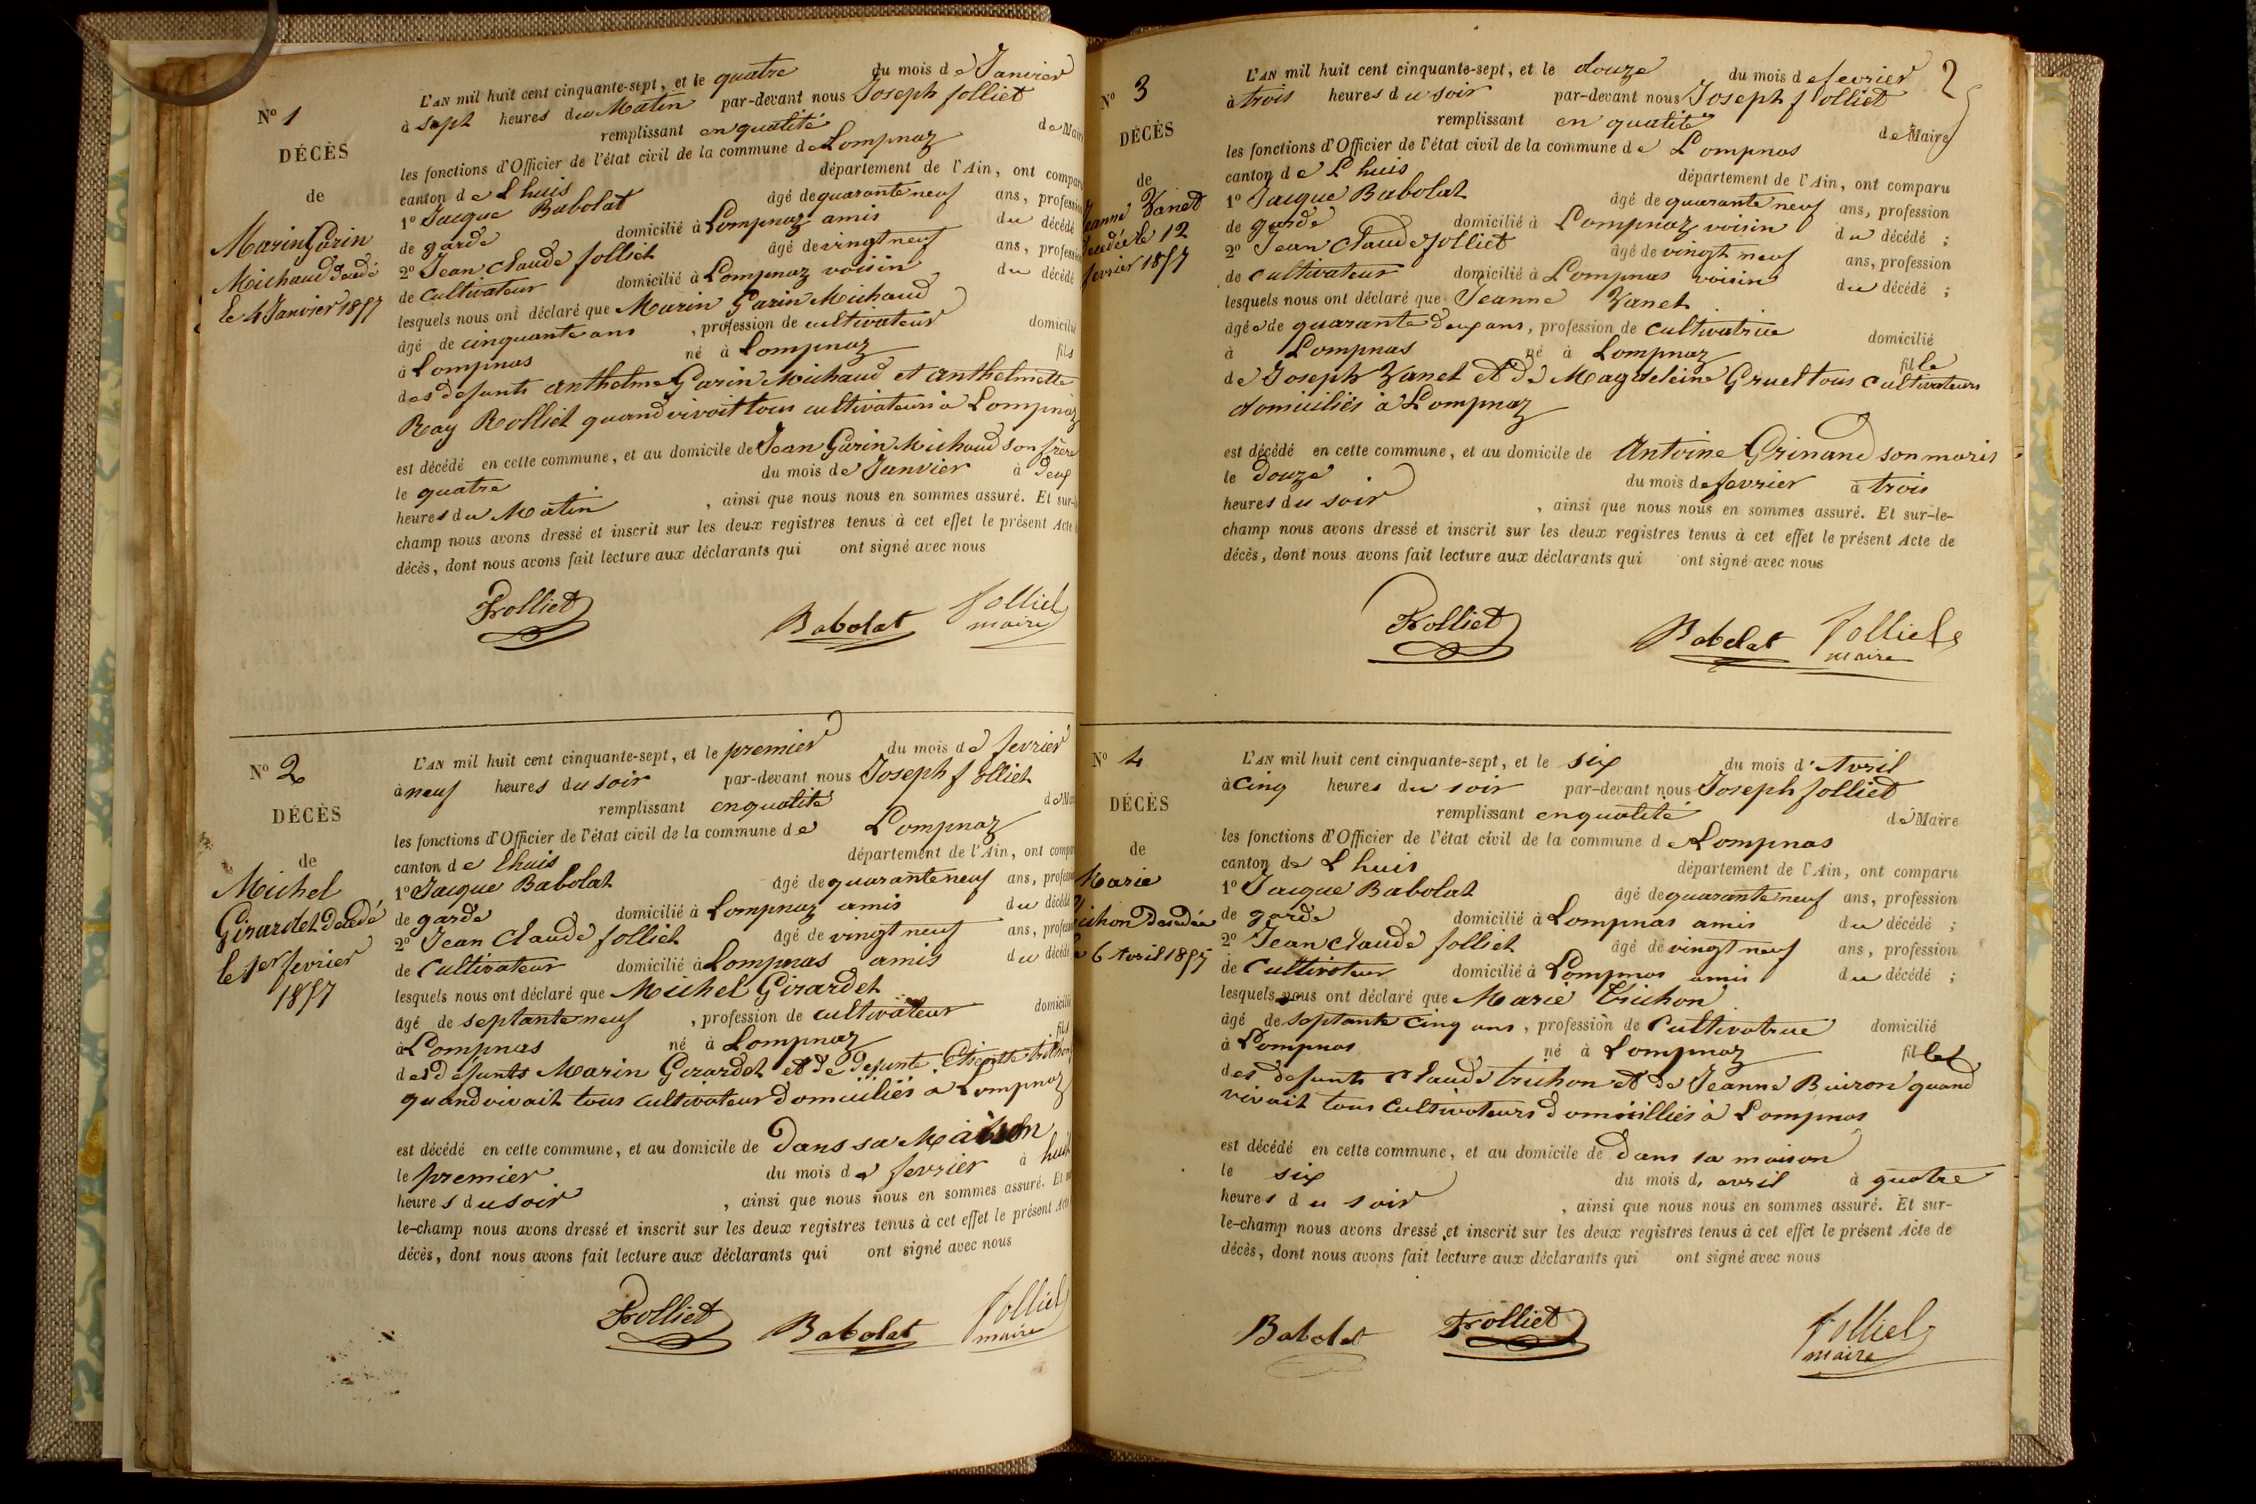 N° 1
DÉCÈS
de
Marin Garin
Michaud décedé
le 4 Janvier 1857
L'AN mil huit cent cinquante-sept, et le quatre du mois de Janvier
à sept heures du Matin par-devant nous Joseph Jolliet
remplissant en qualité de Maire
les fonctions d'Officier de l'état civil de la commune de Lompnaz
canton de Lhuis département de l'Ain, ont comparu
1° Jacque Babolat âgé de quarante neuf ans, profession
de garde domicilié à Lompnaz amis du décédé
2° Jean Claude Jolliet âgé de vingt neuf ans, profession
de Cultivateur domicilié à Lompnaz voisin du décédé
lesquels nous ont déclaré que Marin Garin Michaud
âgé de cinquante ans, profession de cultivateur domicilié
à Lompnas né à Lompnaz fils
des defunts anthelme Garin Michaud et anthelmette
Ray Rolliet quand vivoit tous cultivateurs à Lompnaz
est décédé en cette commune, et au domicile de Jean Garin Michaud son frère
le quatre du mois de Janvier à deux
heures du Matin, ainsi que nous nous en sommes assuré. Et sur-le-
champ nous avons dressé et inscrit sur les deux registres tenus à cet effet le présent Acte
décès, dont nous avons fait lecture aux déclarants qui ont signé avec nous
Babolat Jolliet
maire
N° 2
DÉCÈS
de
Michel
Girardet Décedé
le 1er fevrier
1857
L'AN mil huit cent cinquante-sept, et le premier du mois de fevrier
à neuf heures du soir par-devant nous Joseph Jolliet
remplissant en qualité de Maire
les fonctions d'Officier de l'état civil de la commune de Lompnaz
canton de Lhuis département de l'Ain, ont comparu
1° Jacque Babolat âgé de quarante neuf ans, profession
de garde domicilié à Lompnaz amis du décédé
2° Jean Claude Jolliet âgé de vingt neuf ans, profession
de Cultivateur domicilié à Lompnas amis du décédé
lesquels nous ont déclaré que Michel Girardet
âgé de septante neuf, profession de cultivateur domicilié
à Lompnas né à Lompnaz fils
des défunts Marin Girardet et de defunte trichon
quand vivait tous cultivateur domiciliés à Lompnaz
est décédé en cette commune, et au domicile de Dans sa Maison
le premier du mois de fevrier à huit
heures du soir, ainsi que nous nous en sommes assuré. Et
le-champ nous avons dressé et inscrit sur les deux registres tenus à cet effet le présent Acte
décès, dont nous avons fait lecture aux déclarants qui ont signé avec nous
Babolat Jolliet
maire
2
N° 3
DÉCÈS
de
Jeanne Vanet
decedée le 12
fevrier 1857
L'AN mil huit cent cinquante-sept, et le douze du mois de fevrier
à trois heures du soir par-devant nous Joseph Jolliet
remplissant en qualité de Maire
les fonctions d'Officier de l'état civil de la commune de Lompnas
canton de Lhuis département de l'Ain, ont comparu
1° Jacque Babolat âgé de quarante neuf ans, profession
de garde domicilié à Lompnaz voisin du décédé ;
2° Jean Claude Jolliet âgé de vingt neuf ans, profession
de cultivateur domicilié à Lompnas voisin du décédé ;
lesquels nous ont déclaré que Jeanne Vanet
âgée de quarante deux ans, profession de Cultivatrice domicilié
à Lompnas né à Lompnaz fille
de Joseph Vanet et de Magdeleine Gruel tous cultivateurs
domiciliés à Lompnaz
est décédé en cette commune, et au domicile de Antoine Grinand son maris
le Douze du mois de fevrier à trois
heures du soir, ainsi que nous nous en sommes assuré. Et sur-le-
champ nous avons dressé et inscrit sur les deux registres tenus à cet effet le présent Acte de
décès, dont nous avons fait lecture aux déclarants qui ont signé avec nous
Babolat Jolliet
maire
N° 4
DÉCÈS
de
Marie
trichon Decedée
le 6 Avril 1857
L'AN mil huit cent cinquante-sept, et le six du mois d'Avril
à Cinq heures du soir par-devant nous Joseph Jolliet
remplissant en qualité de Maire
les fonctions d'Officier de l'état civil de la commune de Lompnas
canton de Lhuis département de l'Ain, ont comparu
1° Jacque Babolat âgé de quarante neuf ans, profession
de garde domicilié à Lompnas amis du décédé ;
2° Jean Claude Jolliet âgé de vingt neuf ans, profession
de Cultivateur domicilié à Lompnas amis du décédé ;
lesquels nous ont déclaré que Marie trichon
âgé de septante cinq ans, profession de Cultivatrice domicilié
à Lompnas né à Lompnaz fille
des defunts Claude trichon et de Jeanne Buiron quand
vivait tous Cultivateurs domicilliés à Lompnas
est décédé en cette commune, et au domicile de Dans sa maison
le six du mois d avril à quatre
heures du soir, ainsi que nous nous en sommes assuré. Et sur-
le-champ nous avons dressé et inscrit sur les deux registres tenus à cet effet le présent Acte de
décès, dont nous avons fait lecture aux déclarants qui ont signé avec nous
Babolat Jolliet
maire